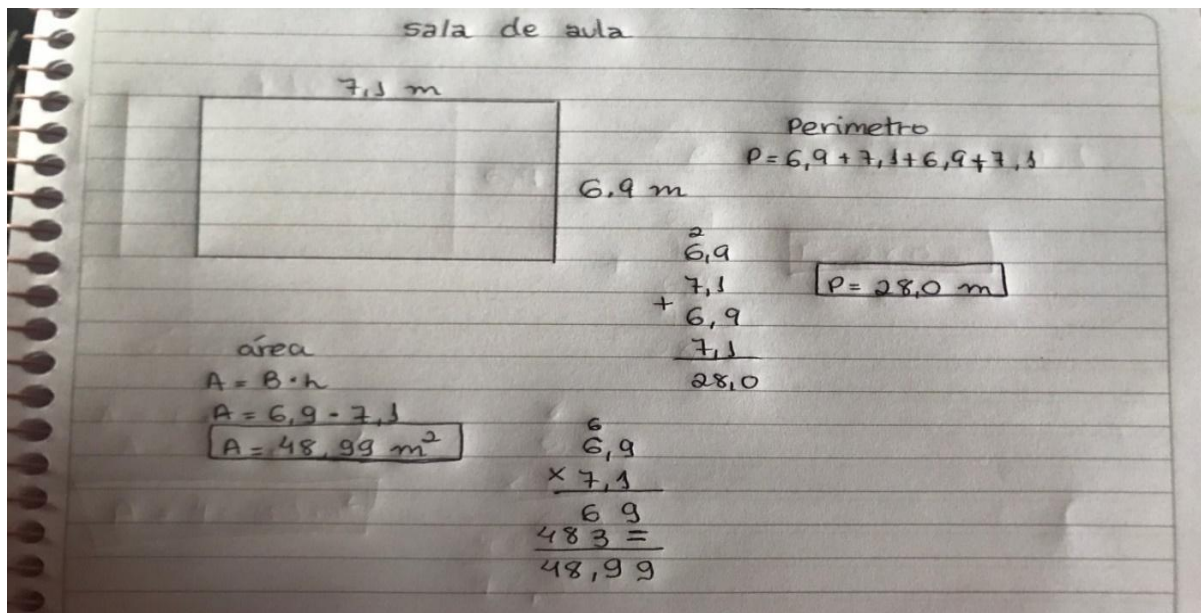 sala de aula
7,1 m
6,9 m
Perimetro
P = 6,9 + 7,1 + 6,9 + 7,1
2
6,9
7,1
+ 6,9
7,1
28,0
P = 28,0 m
área
A = B · h
A = 6,9 · 7,1
A = 48,99 m²
6
6,9
× 7,1
6 9
4 8 3 =
48,99